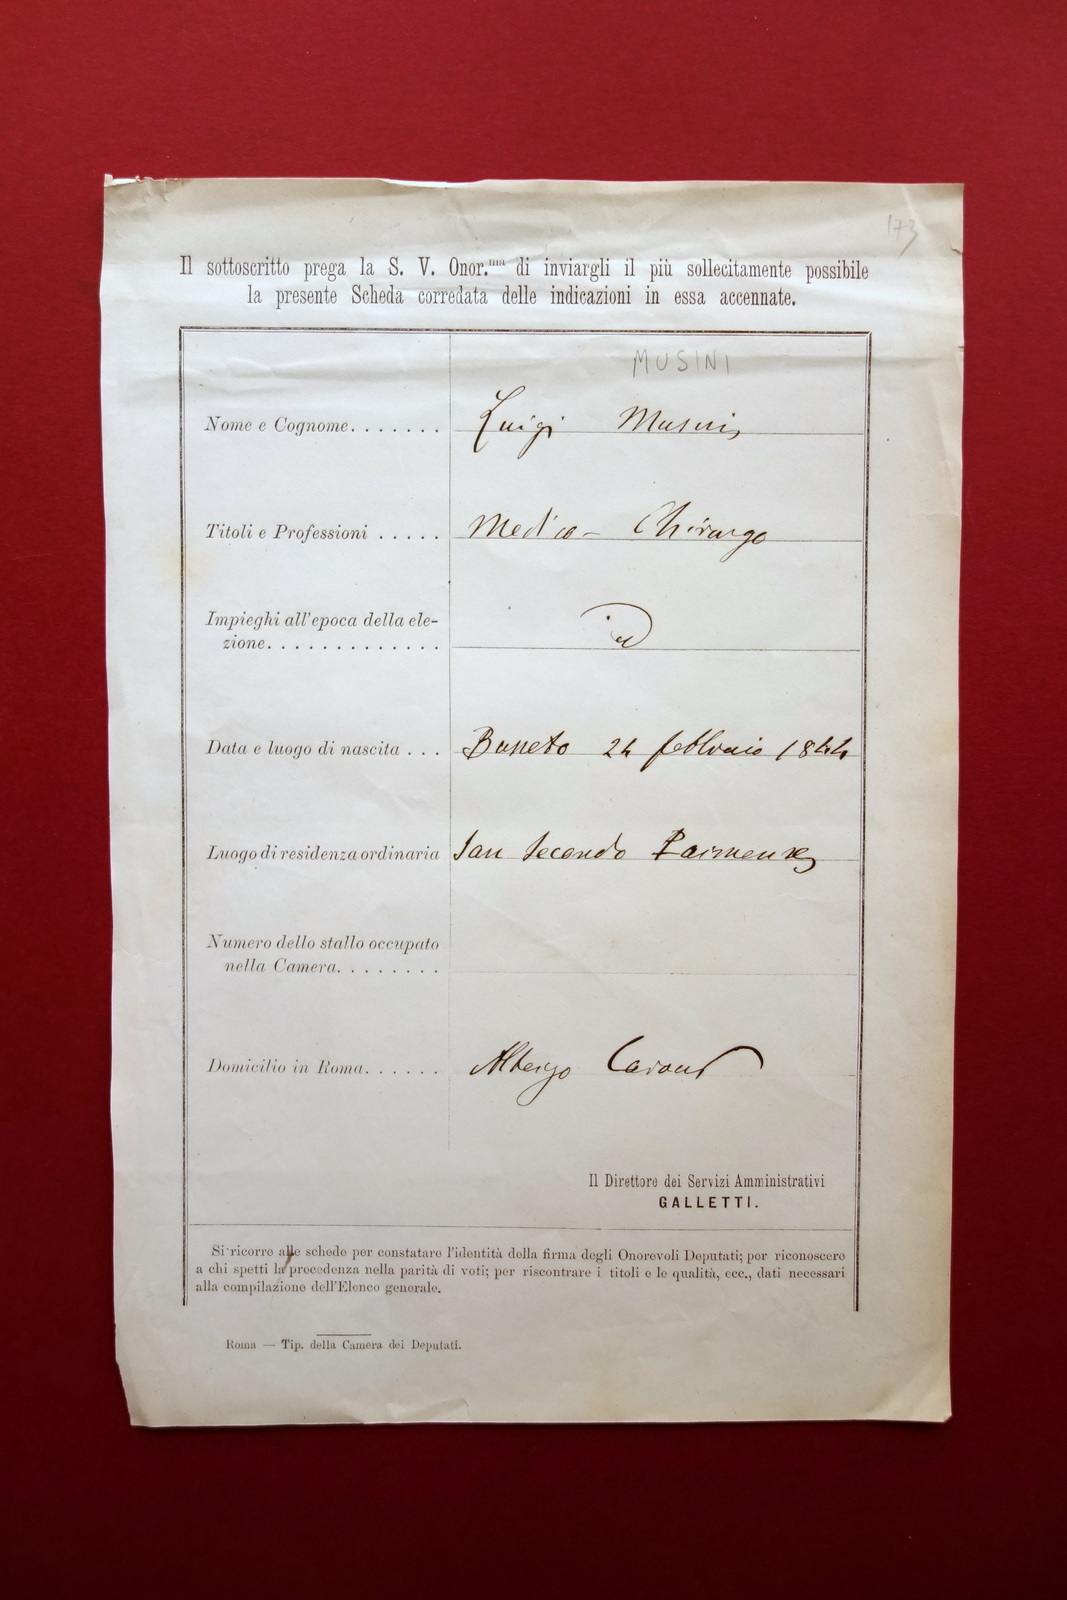 173
Il sottoscritto prega la S. V. Onor.ma di inviargli il più sollecitamente possibile
la presente Scheda corredata delle indicazioni in essa accennate.
MUSINI
Nome e Cognome. . . . . . . Luigi Musini
Titoli e Professioni . . . . . Medico - Chirurgo
Impieghi all'epoca della ele-
zione. . . . . . . . . . . . . id
Data e luogo di nascita . . . Busseto 24 febbraio 1844
Luogo di residenza ordinaria San Secondo Parmense
Numero dello stallo occupato
nella Camera. . . . . . . .
Domicilio in Roma. . . . . . Albergo Cavour
Il Direttore dei Servizi Amministrativi
GALLETTI.
Si ricorre alle schede per constatare l'identità della firma degli Onorevoli Deputati; per riconoscere
a chi spetti la precedenza nella parità di voti; per riscontrare i titoli e le qualità, ecc., dati necessari
alla compilazione dell'Elenco generale.
Roma — Tip. della Camera dei Deputati.